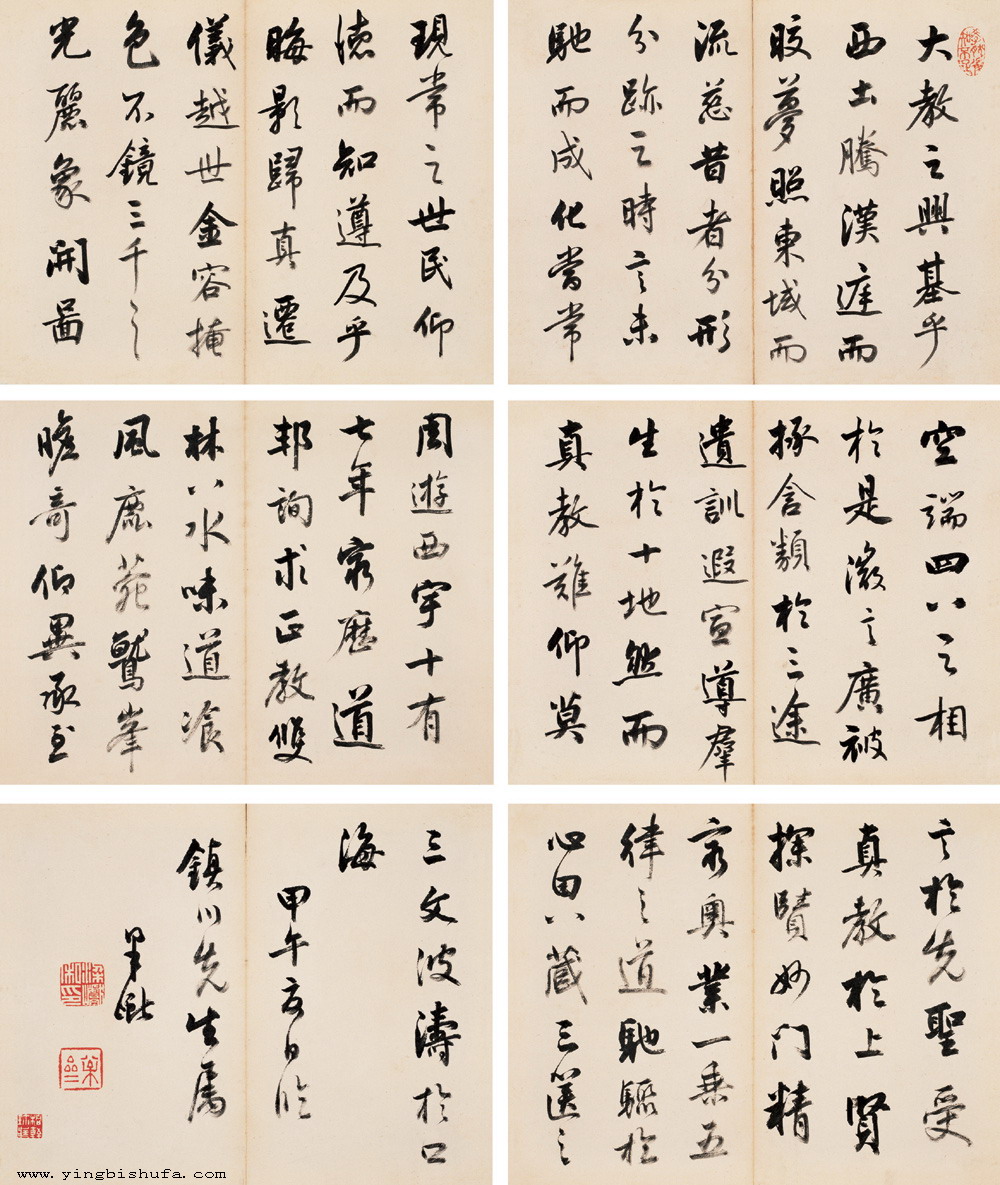 大教之興基乎
西土騰漢庭而
皎夢照東域而
流慈昔者分形
分跡之時言未
馳而成化當常
現常之世民仰
德而知遵及乎
晦影歸真遷
儀越世金容掩
色不鏡三千之
光麗象開圖
空端四八之相
於是微言廣被
拯含類於三途
遺訓遐宣導羣
生於十地然而
真教難仰莫
周遊西宇十有
七年窮歷道
邦詢求正教雙
林八水味道飡
風鹿菀鷲峯
瞻奇仰異承至
言於先聖受
真教於上賢
探賾妙門精
窮奧業一乘五
律之道馳驟於
心田八藏三篋之
三文波濤於口
海
甲午夏日臨
鎮川先生屬
梁
www.yingbishufa.com